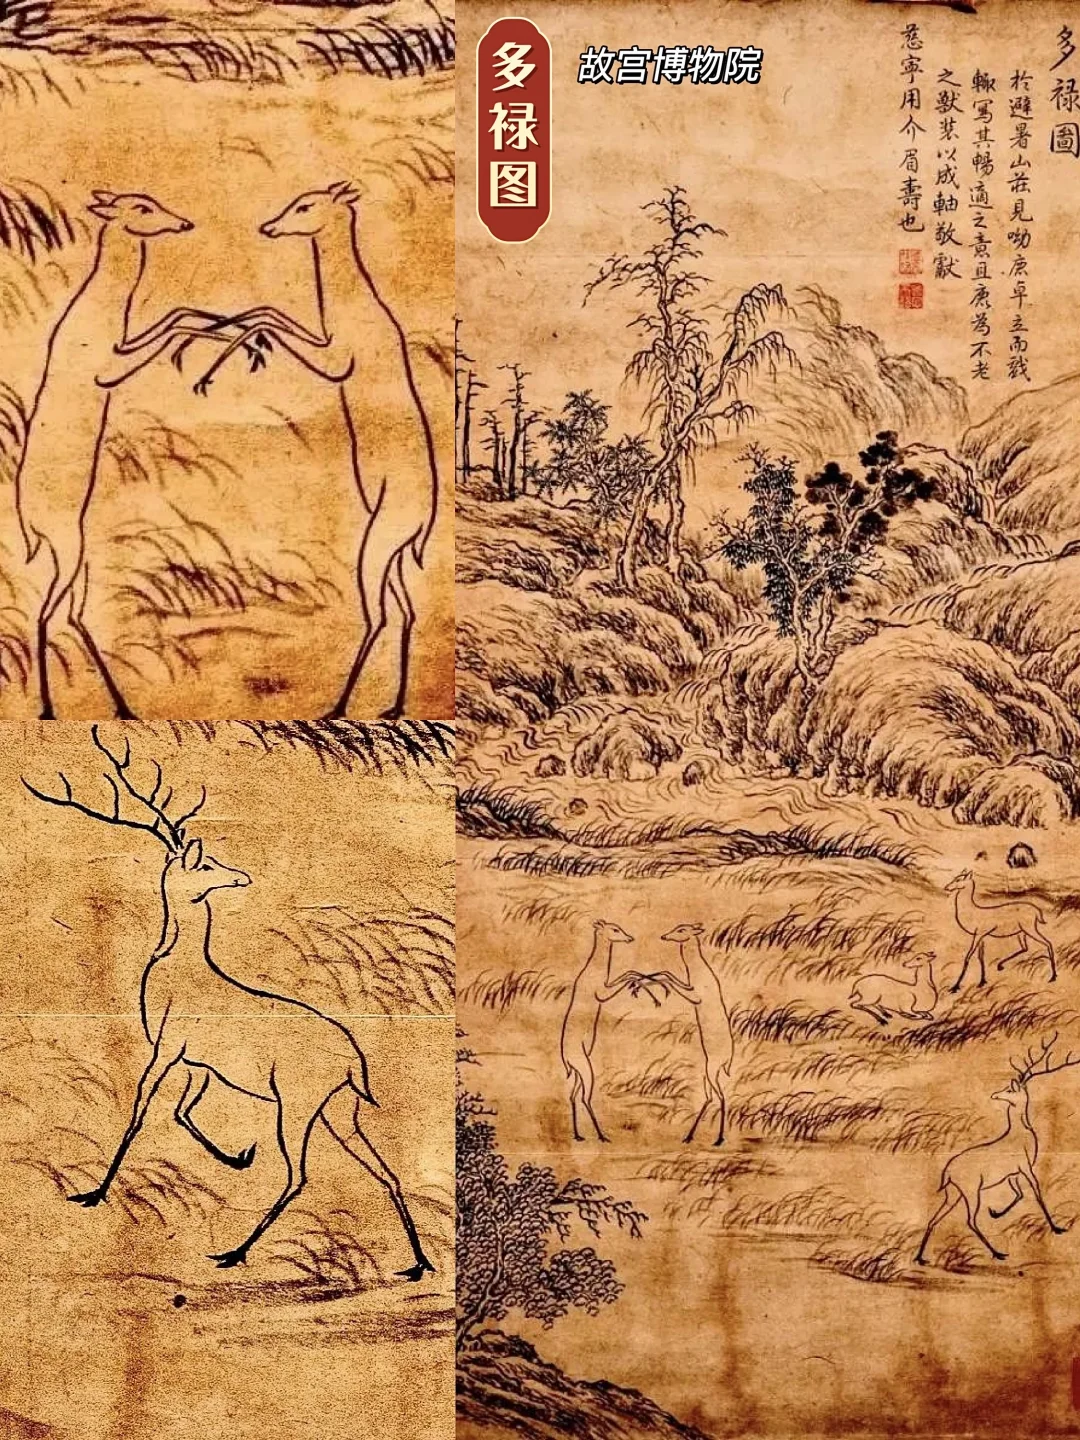 多禄图
故宫博物院
多禄圖
扵避暑山莊見呦鹿卓立而戯
輙寫其暢適之意且鹿為不老
之獸裝以成軸敬獻
慈寧用介眉壽也